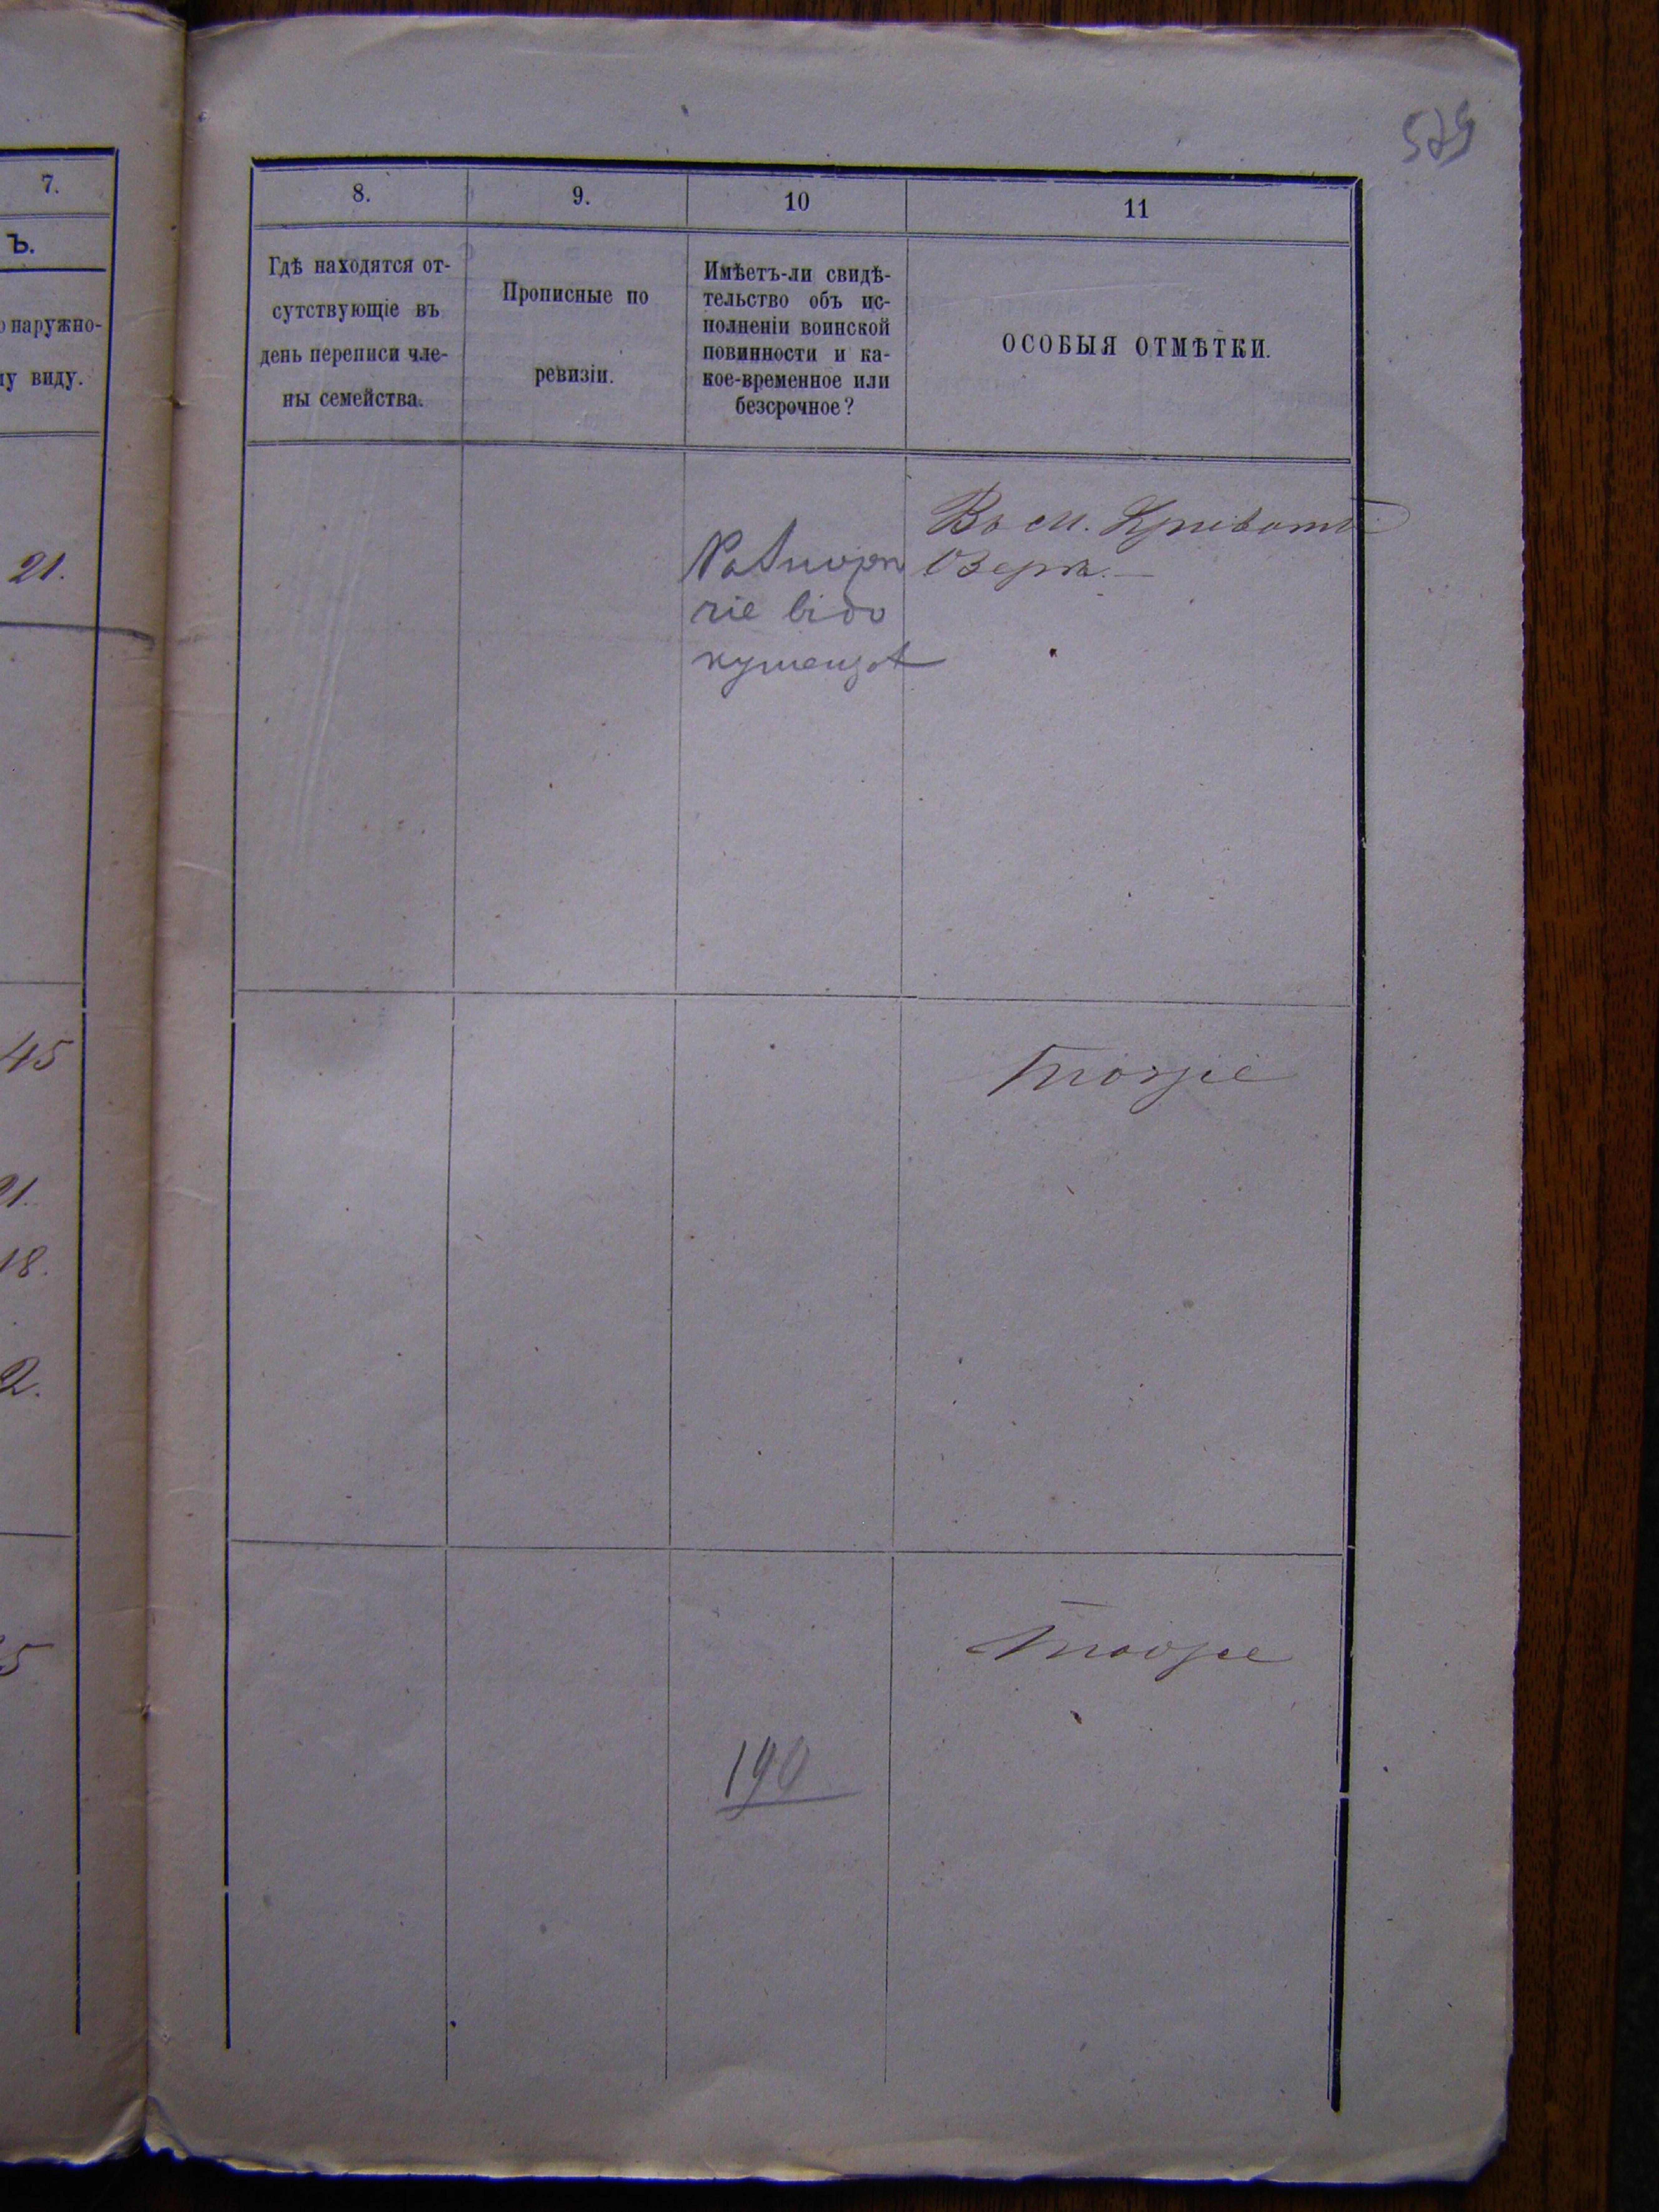 575
7.
Ъ.
о наружно-
му виду.
21.
45
21.
18.
2.
5
8.
Гдѣ находятся от-
сутствующіе въ
день переписи чле-
ны семейства.
9.
Прописные по
ревизіи.
10
Имѣетъ-ли свидѣ-
тельство объ ис-
полненіи воинской
повинности и ка-
кое-временное или
безсрочное?
11
ОСОБЫЯ ОТМѢТКИ.
Въ м. Кривомъ
Озерѣ.
тоже
тоже
190